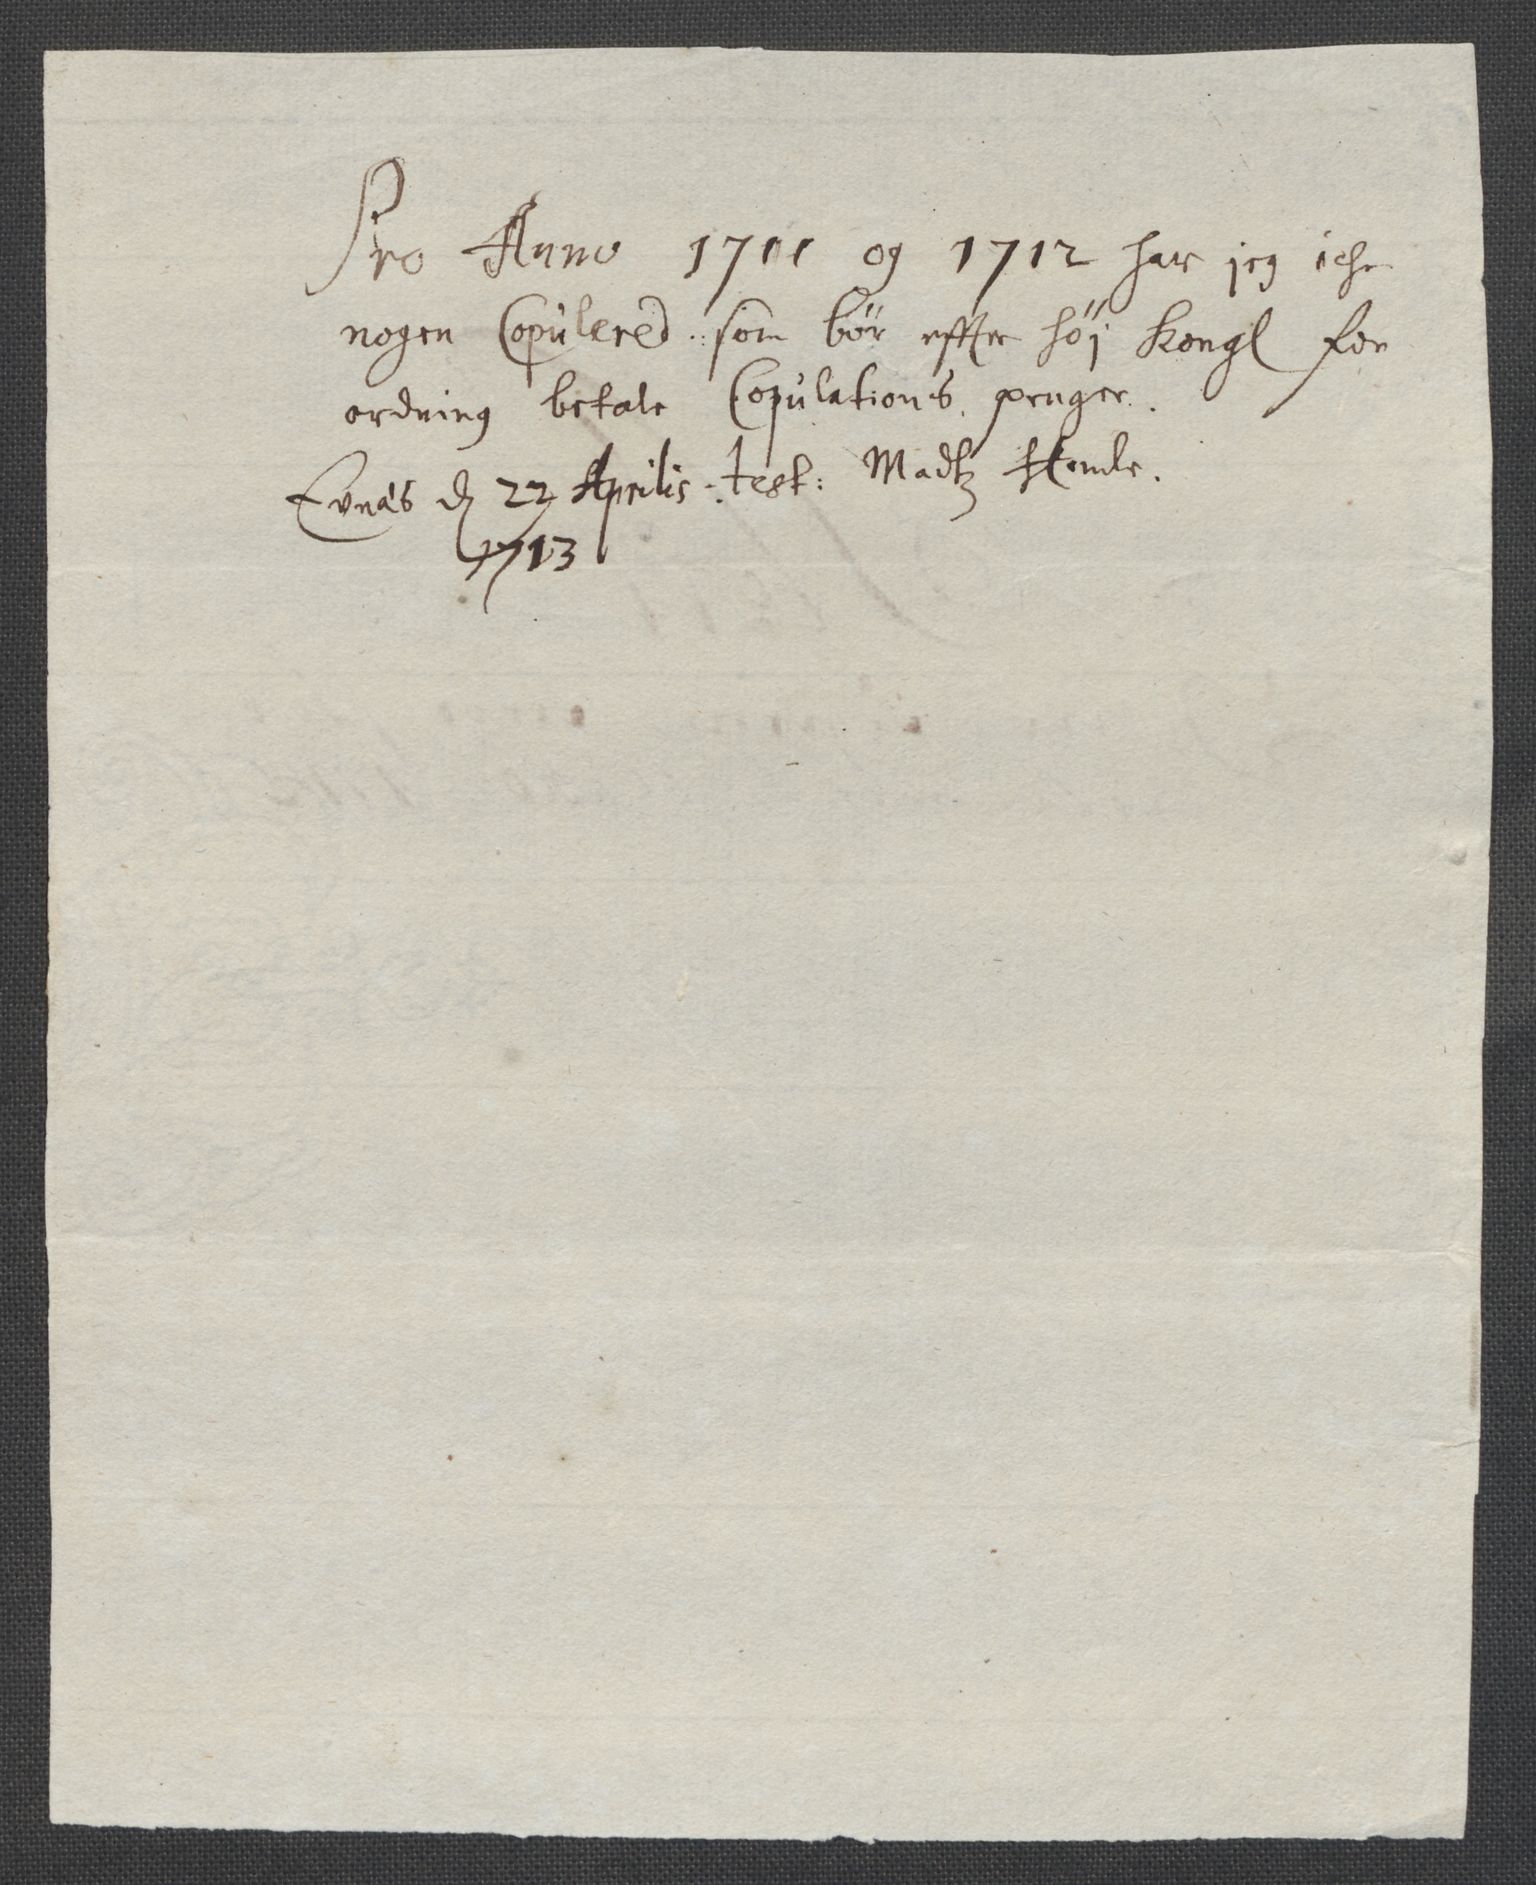 Pro Anno 1711 og 1712 har jeg iche
nogen Copülered som bør effter høj Kongl for
ordning betale Copülations penger.
d 22 Aprilis test: Madtz
1713